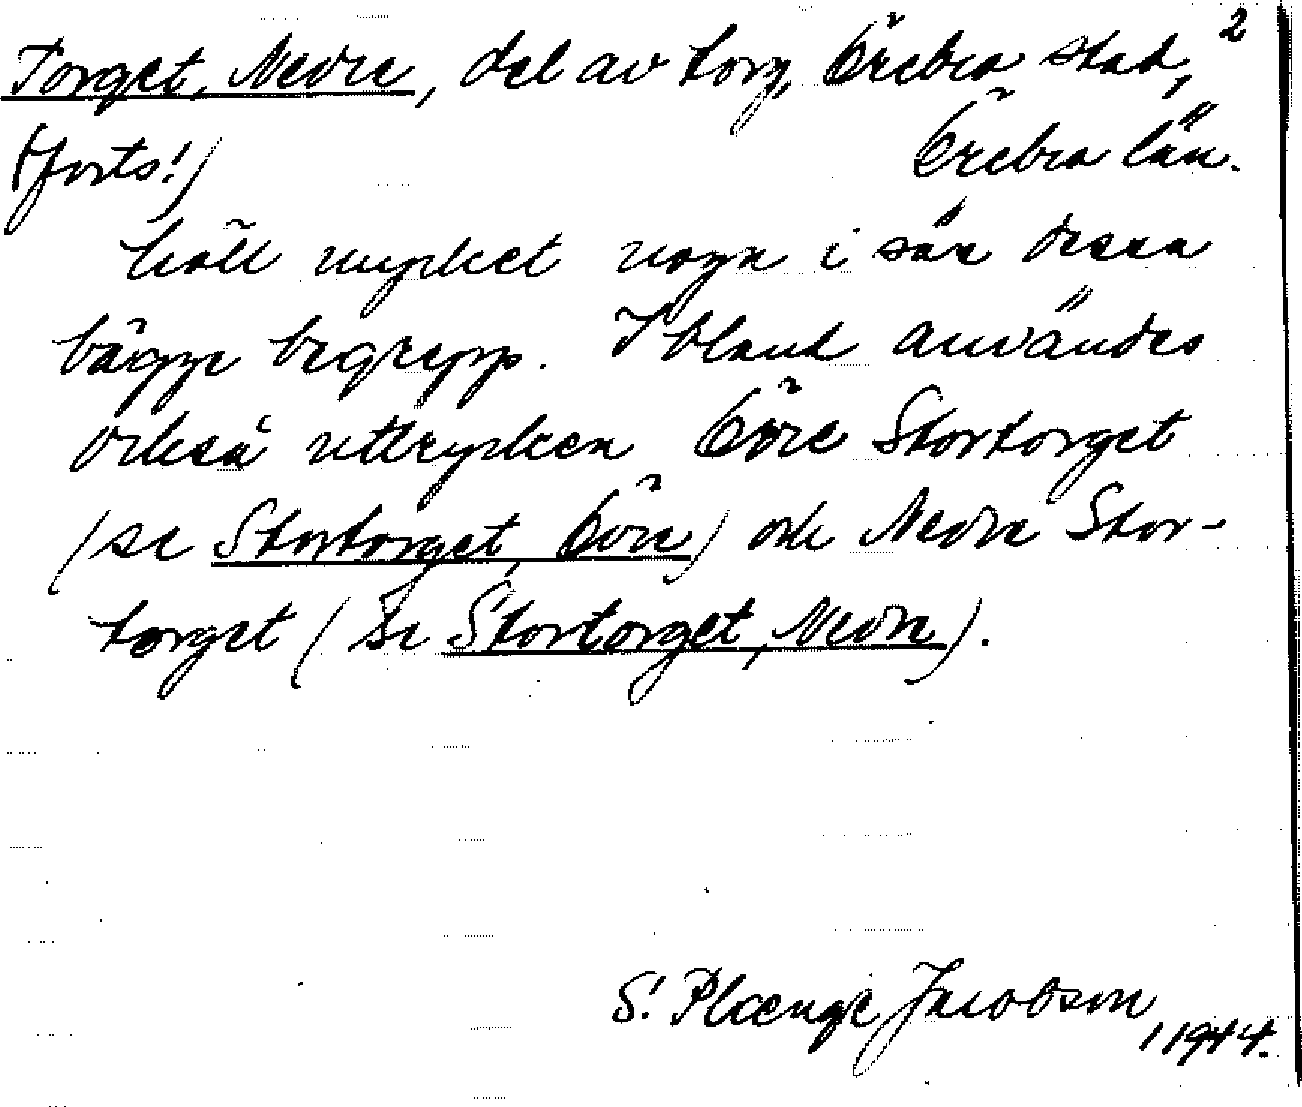 Torget, Nedre, del av torg, Örebro stad, 2
(forts!) Örebro län.
höll mycket noga i sär dessa
bägge begrepp. Ibland användes
också uttrycken Övre Stortorget
(se Stortorget, Övre) och Nedre Stor-
torget (se Stortorget, Nedre).
S. Plænge Jacobson, 1944.